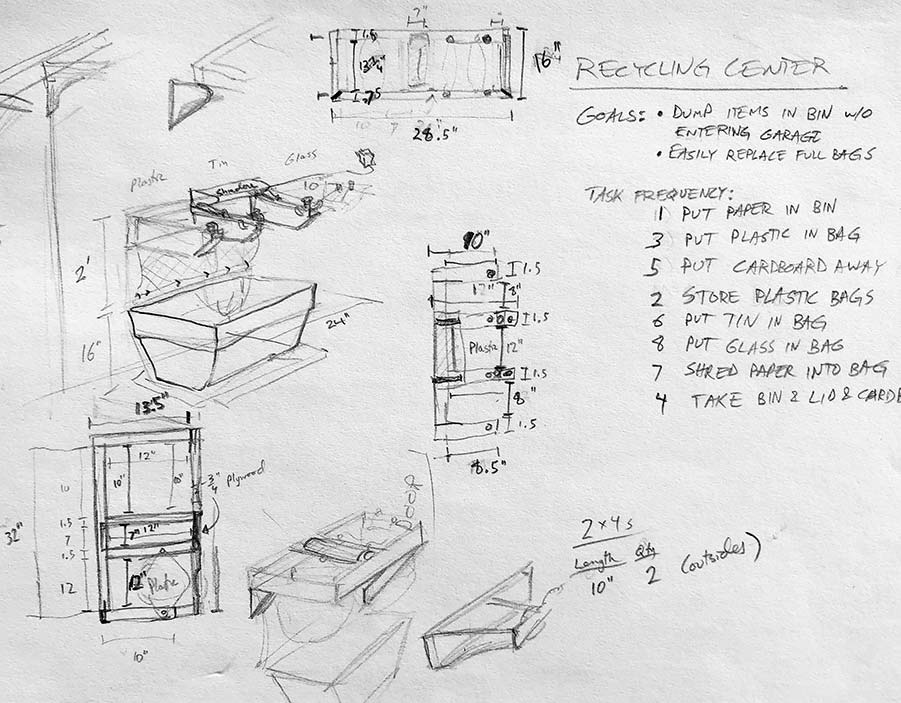 7"
1.5
13 3/4"
.75
16"
28.5"
RECYCLING CENTER
GOALS: • DUMP ITEMS IN BIN W/O
ENTERING GARAGE
• EASILY REPLACE FULL BAGS
TASK FREQUENCY:
1 PUT PAPER IN BIN
3 PUT PLASTIC IN BAG
5 PUT CARDBOARD AWAY
2 STORE PLASTIC BAGS
6 PUT TIN IN BAG
8 PUT GLASS IN BAG
7 SHRED PAPER INTO BAG
4 TAKE BIN & LID & CARDB
Plastic
Tin
Glass
Shredder
10"
2'
16"
24"
10"
1.5
8"
1.5
Plastic
12"
1.5
8"
1.5
8.5"
13.5"
12"
10"
3/4 Plywood
10
1.5
7
1.5
12
32"
7"
12"
12"
Plastic
10"
DOOR
2x4s
Length Qty
10" 2 (outsides)